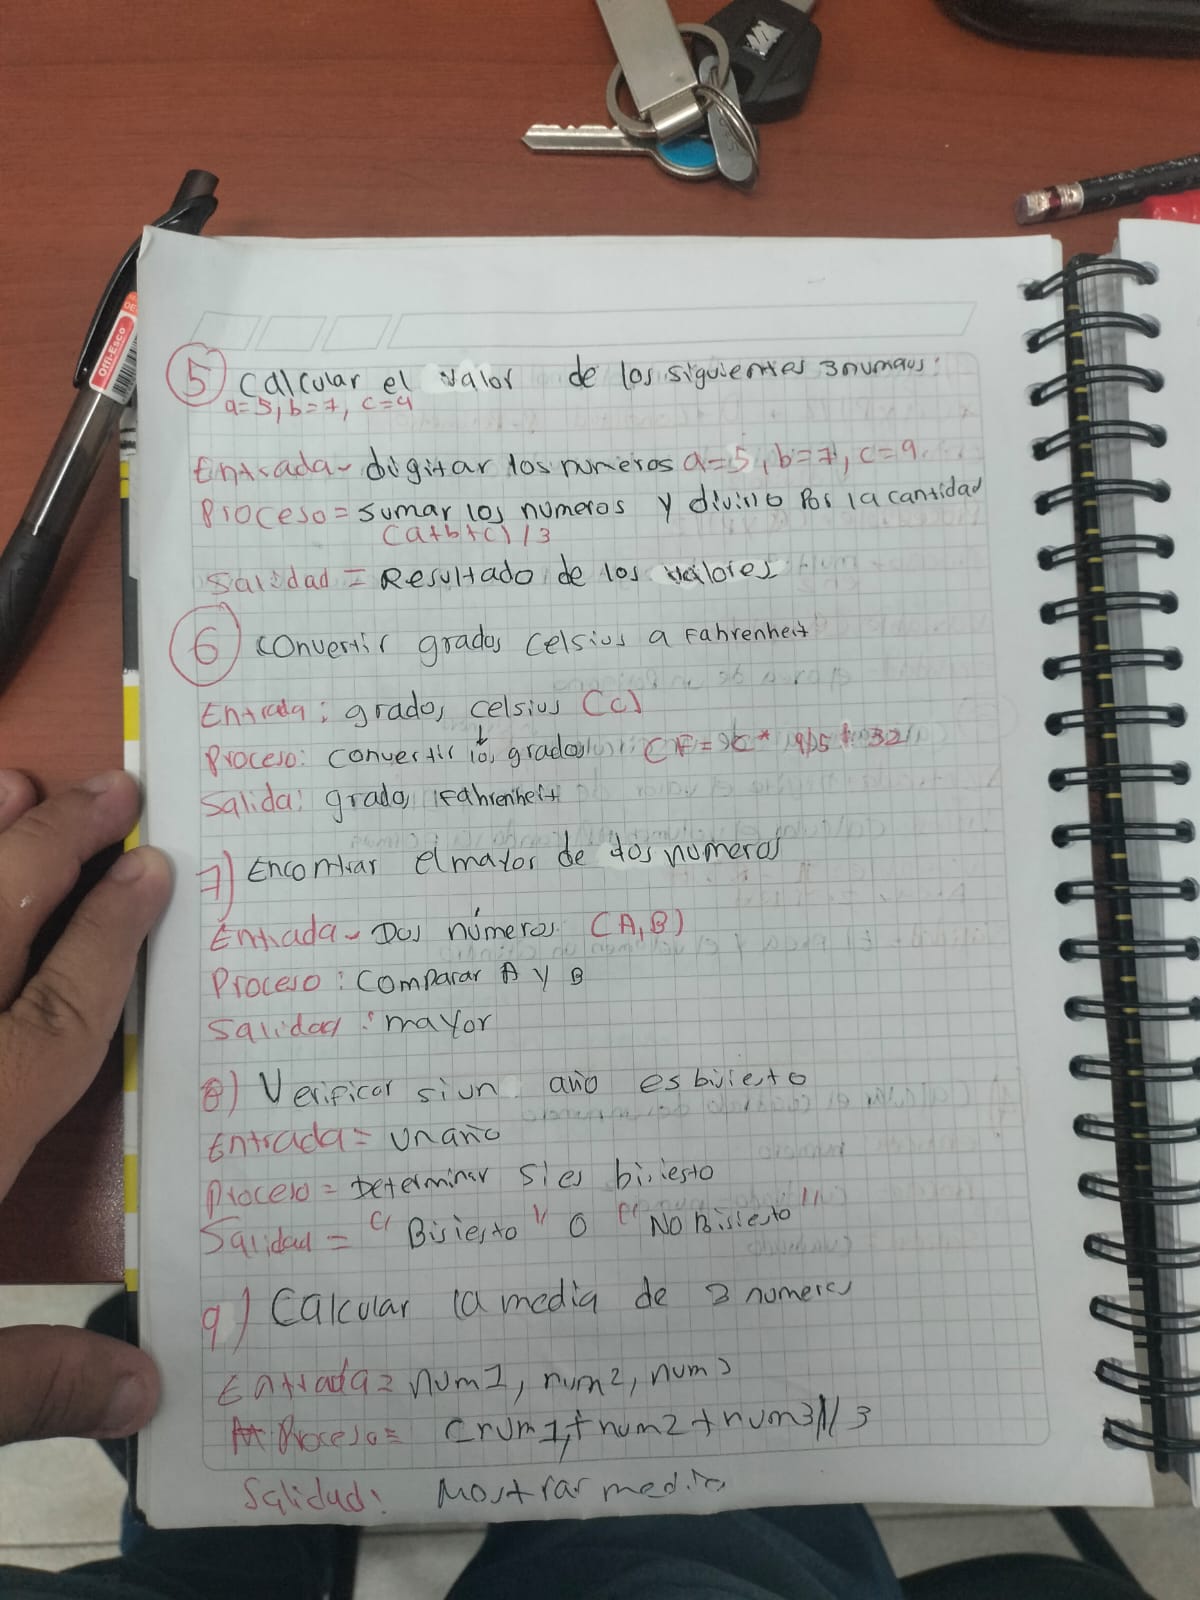 Offi-Esco
5 Calcular el valor de los siguientes 3 numeros:
a=5, b=7, c=9
Entrada~ digitar los numeros a=5, b=7, c=9.
Proceso = sumar los numeros y divirlo por la cantidad
(a+b+c)/3
Salidad = Resultado de los valores
6 Convertir grados Celsius a Fahrenheit
Entrada: grados celsius (c)
Proceso: convertir los grados (F= C * 9/5 + 32)
Salida: grados Fahrenheit
7) Encontrar el mayor de dos numeros
Entrada~ Dos números (A,B)
Proceso: Comparar A y B
Salidad: mayor
8) Verificar si un año es bisiesto
Entrada = un año
Proceso = Determinar si es bisiesto
Salidad = "Bisiesto" o "No Bisiesto"
9) Calcular la media de 3 numeros
Entrada= num1, num2, num3
Proceso= (num1+num2+num3)/3
Salidad: Mostrar media